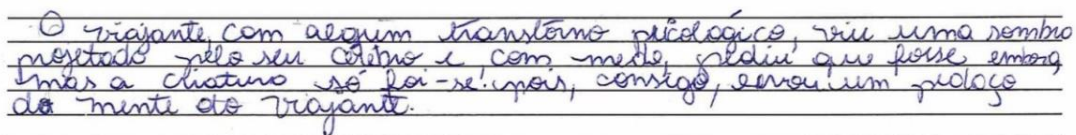 O viajante, com algum transtorno psicologico, viu uma sombra
projetado pelo seu cérebro e com medo, pediu que fosse embora,
mas a criatura só foi-se! pois, consigo, levou um pedaço
da mente do viajante.